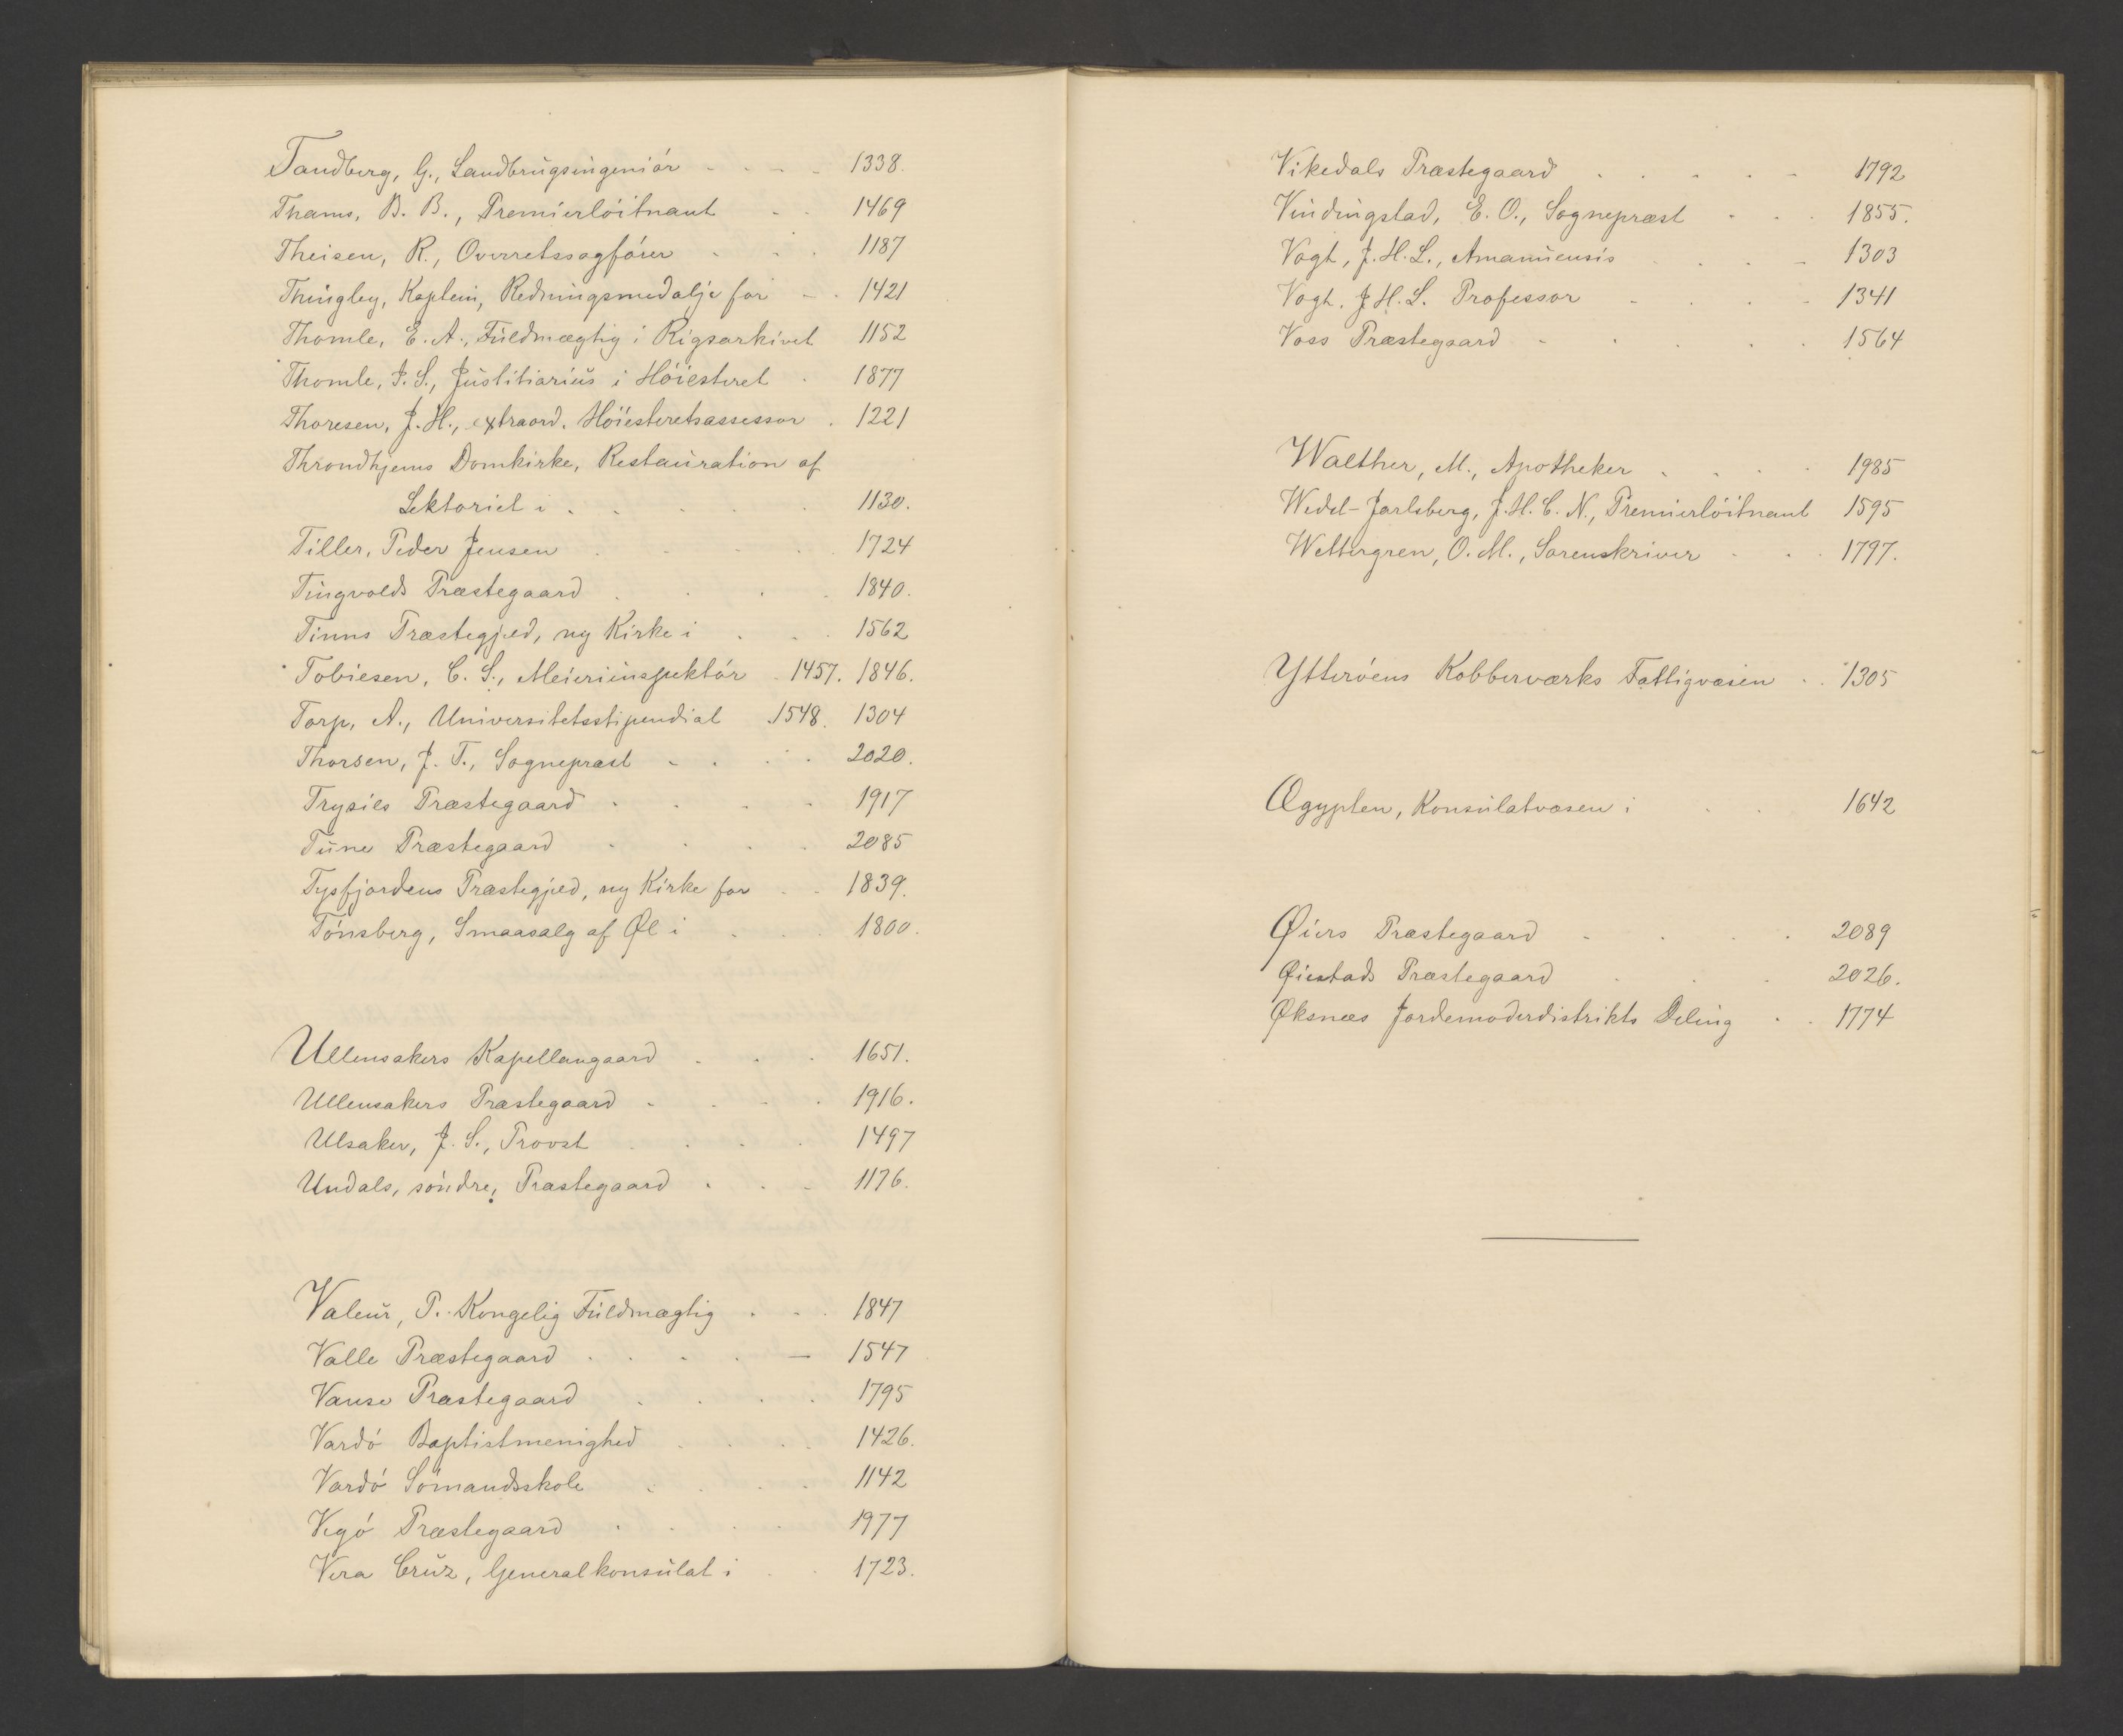 Tandberg, G., Landbrugsingeniör 1338.
Thams, B. B., Premierlöitnant 1469
Theisen, R., Overretssagförer 1187
Thingley, Kaptein, Redningsmedalje for 1421
Thomle, E. A., Fuldmægtig i Rigsarkivet 1152
Thomle, I. S., Justitiarius i Höiesteret 1877
Thoresen, J. H., extraord. Höiesteretsassessor 1221
Throndhjems Domkirke, Restauration af
Lektoriet i 1130.
Tiller, Peder Jensen 1724
Tingvolds Præstegaard 1840.
Tinns Præstegjæld, ny Kirke i 1562
Tobiesen, C. S., Meieriinspektör 1457. 1846.
Torp, A., Universitetsstipendiat 1548. 1304
Thorsen, J. T., Sognepræst 2020.
Trysils Præstegaard 1917
Tune Præstegaard 2085
Tysfjordens Præstegjæld, ny Kirke for 1839.
Tönsberg, Smaasalg af Øl i 1800.
Ullensakers Kapellangaard 1651.
Ullensakers Præstegaard 1916.
Ulsaker, J. S., Provst 1497
Undals, söndre, Præstegaard 1176.
Valeur, P. Kongelig Fuldmægtig 1847
Valle Præstegaard 1547
Vanse Præstegaard 1795
Vardö Baptistmenighed 1426.
Vardö Sömandsskole 1142
Vegö Præstegaard 1977
Vera Cruz, Generalkonsulat i 1723.
Vikedals Præstegaard 1792
Vindingstad, E. O., Sognepræst 1855.
Vogt, J. H. L., Amanuensis 1303
Vogt, J. H. L. Professor 1341
Voss Præstegaard 1564
Walther, M., Apotheker 1985
Wedel-Jarlsberg, J. H. C. N., Premierlöitnant 1595
Wettergren, O. M., Sorenskriver 1797.
Ytteröens Kobberværks Fattigvæsen 1305
Ægypten, Konsulatvæsen i 1642
Øiers Præstegaard 2089
Øiestads Præstegaard 2026.
Øksnæs Jordemoderdistrikts Deling 1774